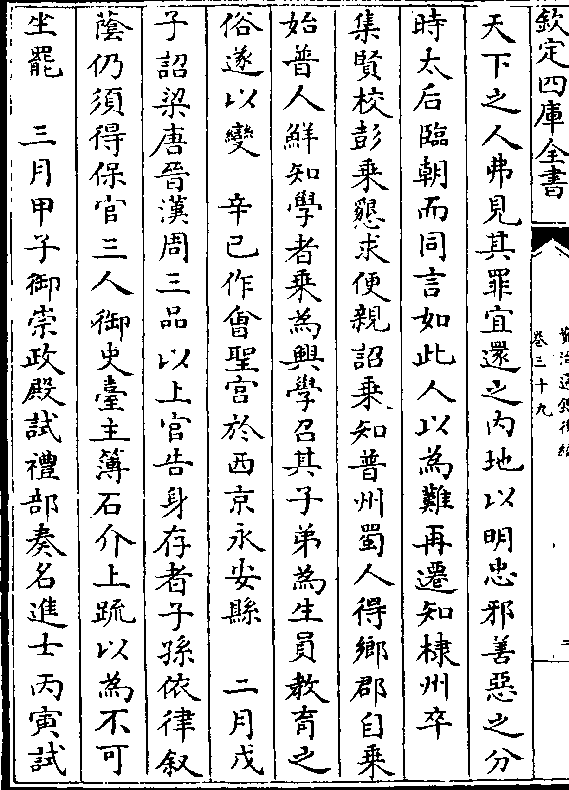 欽定四庫全書
資治通鑑後編
卷三十九
天下之人弗見其罪宜還之内地以明忠邪善惡之分
時太后臨朝而同言如此人以為難再遷知棣州卒
集賢校彭乗懇求便親詔乗知普州蜀人得鄉郡自乗
始普人鮮知學者乗為興學召其子弟為生員教育之
俗遂以變　辛巳作會聖宫於西京永安縣　二月戊
子詔梁唐晉漢周三品以上官告身存者子孫依律叙
蔭仍須得保官三人御史臺主簿石介上疏以為不可
坐罷　三月甲子御崇政殿試禮部奏名進士丙寅試